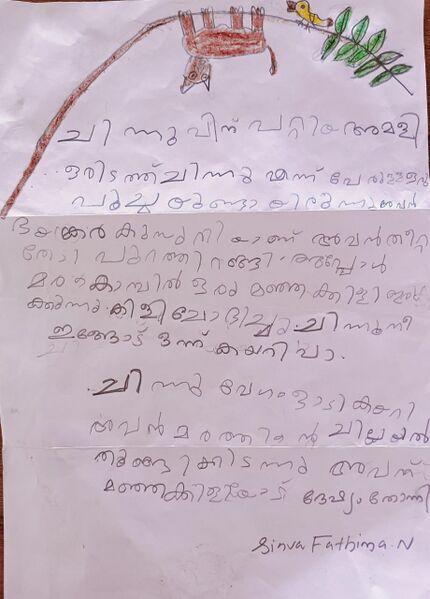 ചിന്നുവിന് പറ്റിയ അമളി
ഒരിടത്ത് ചിന്നു എന്ന് പേരുള്ളൊരു
പൂച്ച യുണ്ടായിരുന്നു അവൻ
ഭയങ്കര കുസൃതി യാണ് അവൻ തീറ്റ
തേടി പുറത്തിറങ്ങി. അപ്പോൾ
മരകൊമ്പിൽ ഒരു മഞ്ഞക്കിളി ഇരി
ക്കുന്നു. കിളി ചോദിച്ചു. ചിന്നു നീ
ഇങ്ങോട്ട് ഒന്ന് കയറി വാ.
ചിന്നു വേഗം ഓടി കയറി
അവൻ മരത്തിൻ ചില്ലയിൽ
തൂങ്ങിക്കിടന്നു അവന്
മഞ്ഞക്കിളിയോട് ദേഷ്യം തോന്നി
Sinva Fathima. N